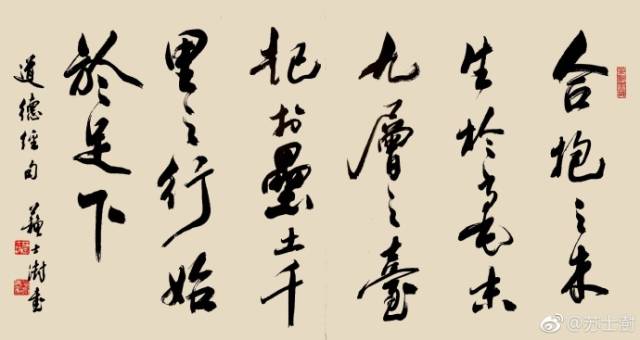 合抱之木
生於毫末
九層之臺
起於壘土千
里之行始
於足下
道德經句 蘇士澍書
@苏士澍